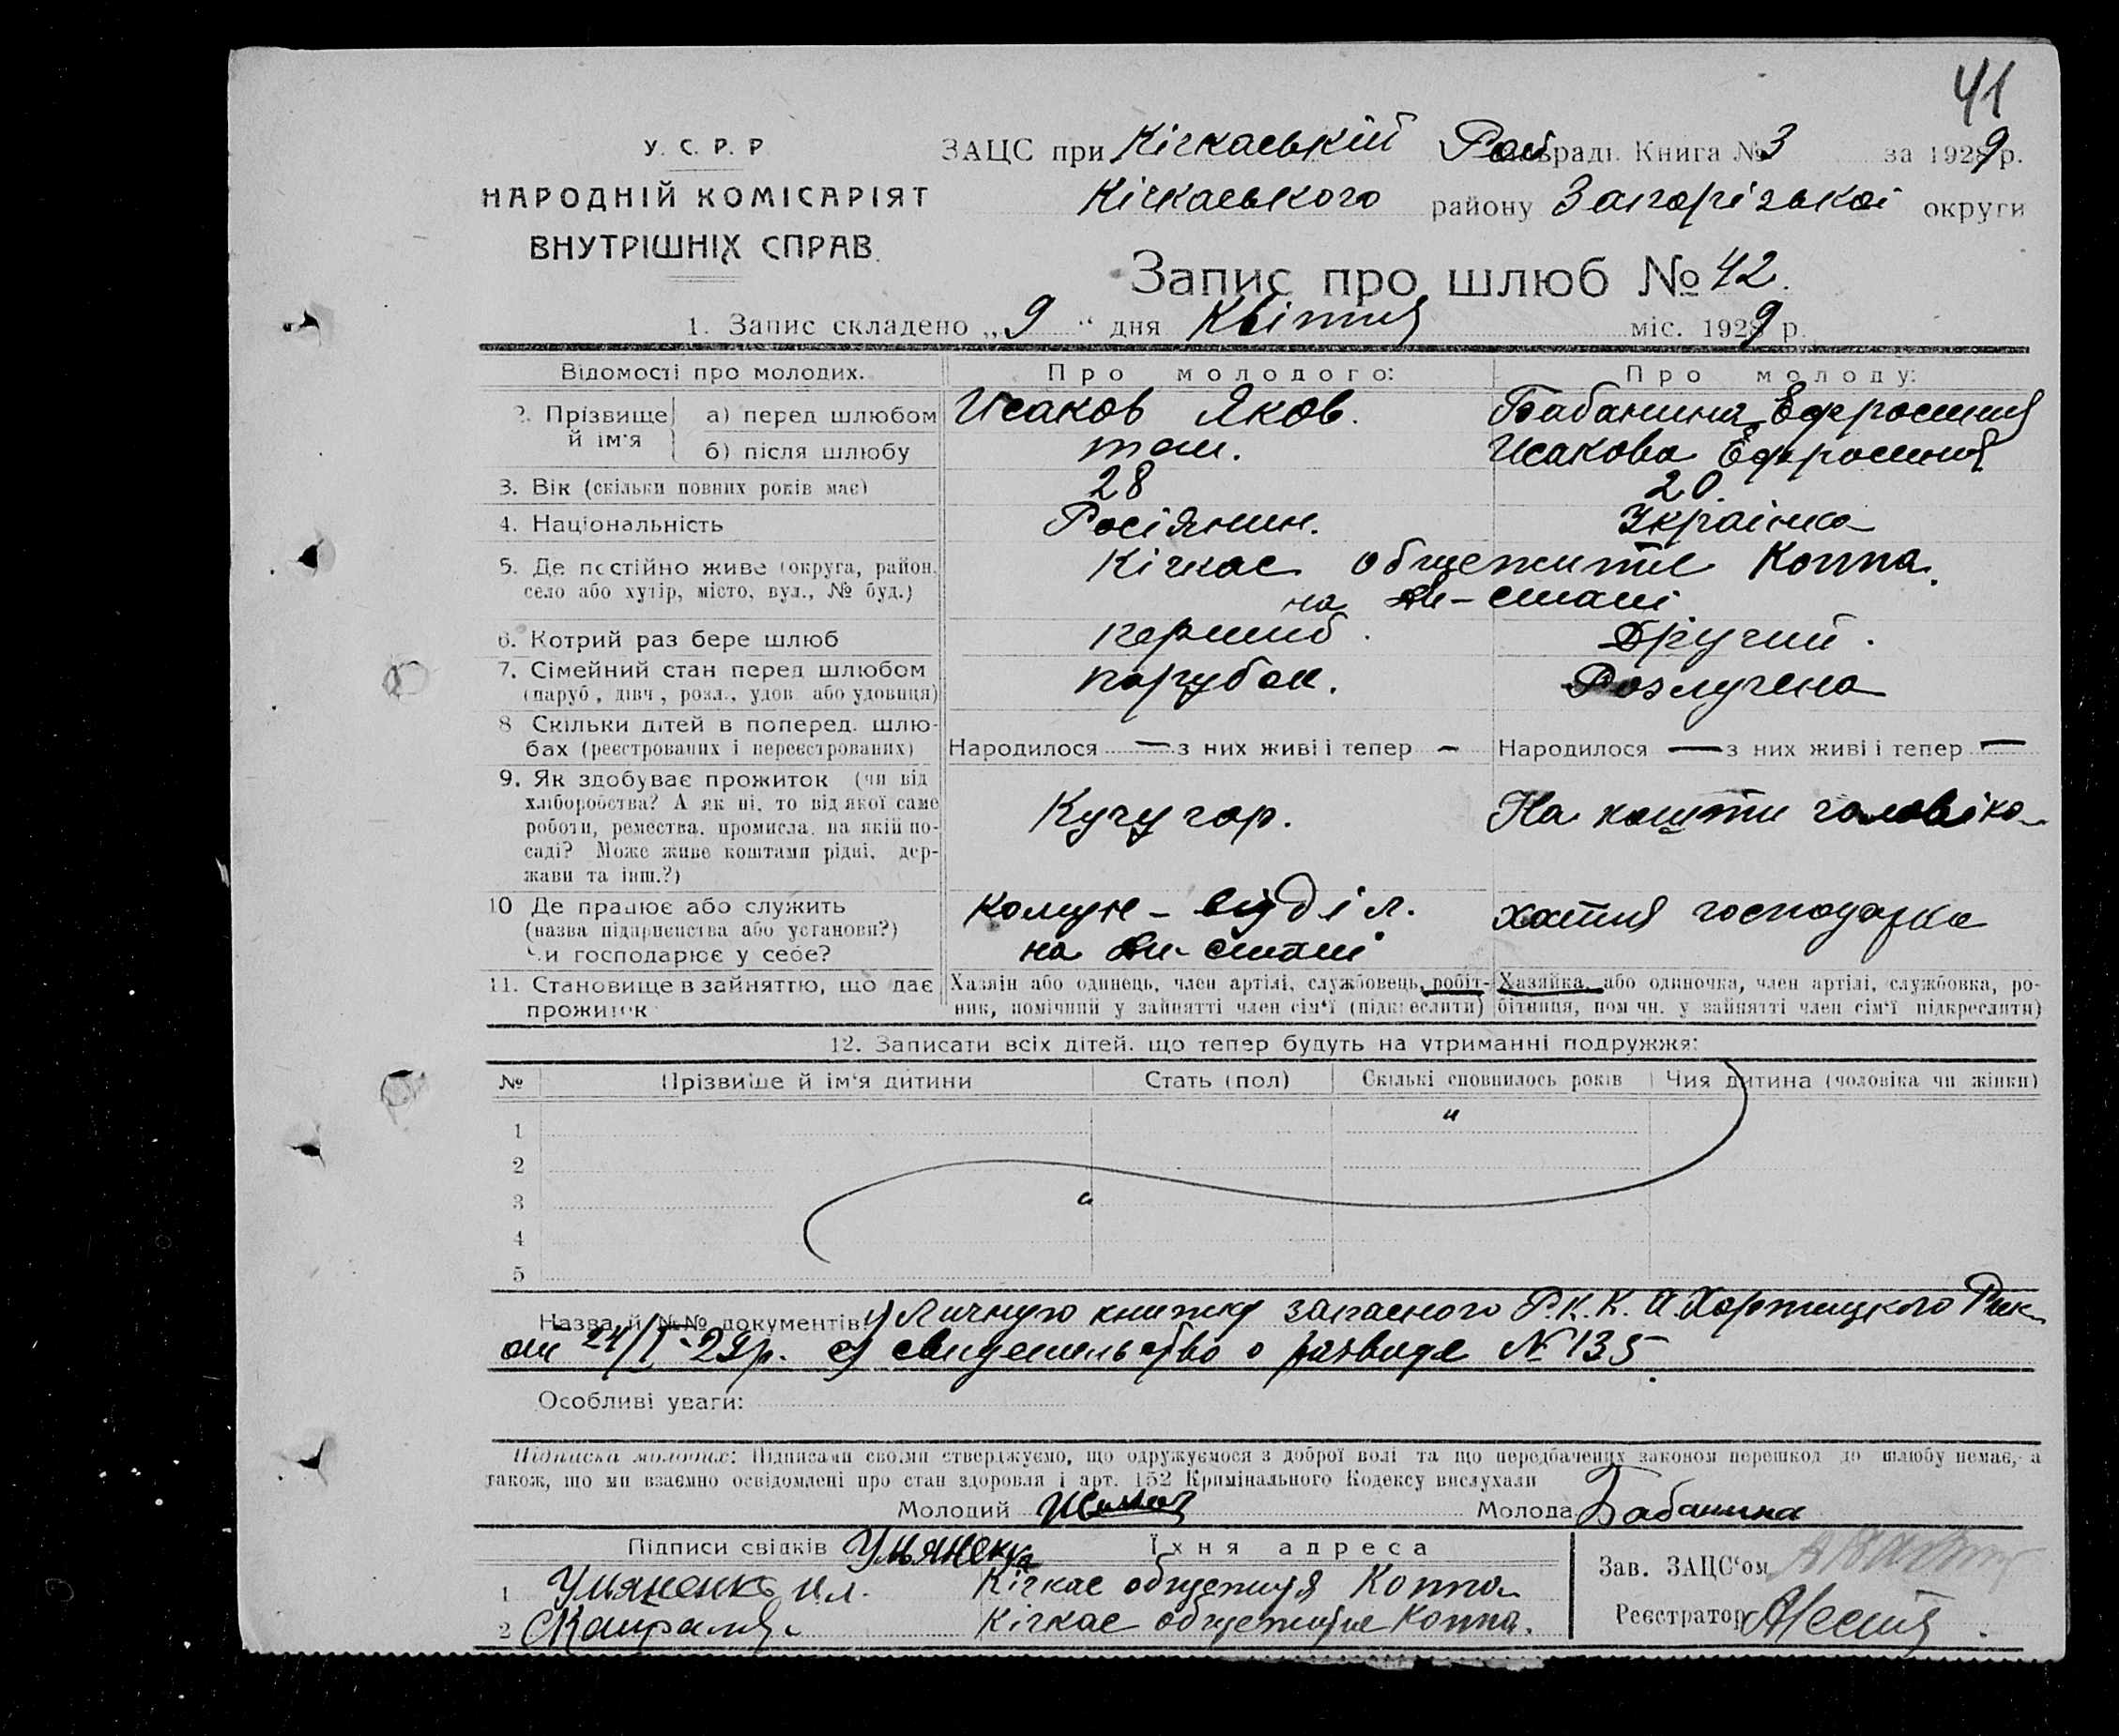 41
У. С. Р. Р
НАРОДНІЙ КОМІСАРІЯТ
ВНУТРІШНІХ СПРАВ.
ЗАЦС при Кічкаській Рай раді. Книга № 3 за 1929 р.
Кічкаського району Запорізької округи
Запис про шлюб № 42.
1. Запис складено „ 9 " дня Квітня міс. 1929 р.
Відомості про молодих. Про молодого: Про молоду:
2. Прізвище й ім'я а) перед шлюбом Исаков Яков. Бабанина Ефросиния
б) після шлюбу тош. Исакова Ефросиния
3. Вік (скільки повних років має) 28 20.
4. Національність Росіянин. Українка
5. Де постійно живе (округа, район, Кічкас общежитие Коппа.
село або хутір, місто, вул., № буд.) на
6. Котрий раз бере шлюб перший. Другий.
7. Сімейний стан перед шлюбом парубок. Розлучена
(паруб., дівч., розл., удов. або удовиця)
8 Скільки дітей в поперед. шлю-
бах (реєстрованих і нереєстрованих) Народилося — з них живі і тепер – Народилося — з них живі і тепер —
9. Як здобуває прожиток (чи від
хліборобства? А як ні, то від якої саме
роботи, ремества, промисла, на якій по- Кучугор. На кошти чоловіка
саді? Може живе коштами рідні, дер-
жави та інш.?)
10 Де працює або служить Комун-відділ. хатня господарка
(назва підприємства або установи?) на
Чи господарює у себе?
11. Становище в зайняттю, що дає Хазяін або одинець, член артілі, службовець, робіт- Хазяйка, або одиночка, член артілі, службовка, ро-
прожиток ник, помічний у зайнятті член сім'ї (підкреслити) бітниця, пом чн. у зайнятті член сім'ї підкреслити)
12. Записати всіх дітей, що тепер будуть на утриманні подружжя:
№ Прізвище й ім'я дитини Стать (пол) Скількі сповнилось років Чия дитина (чоловіка чи жінки)
1 "
2
3 "
4
5
Назва й №№ документів: 1) Личную книжку запасного Р.К.К.А. Хортицкого Рик
от 24/I-29р. 2) свидетельство о разводе № 135.
Особливі уваги:
Підписка молодих: Підписами своїми стверджуємо, що одружуємося з доброї волі та що передбачених законом перешкод до шлюбу немає, а
також, що ми взаємно освідомлені про стан здоровля і арт. 152 Кримінального Кодексу вислухали
Молодий Молода Бабанина
Підписи свідків Їхня адреса
1 Кічкас общежития Коппа Зав. ЗАЦС'ом
2 Кічкас общежитие Коппа. Реєстратор